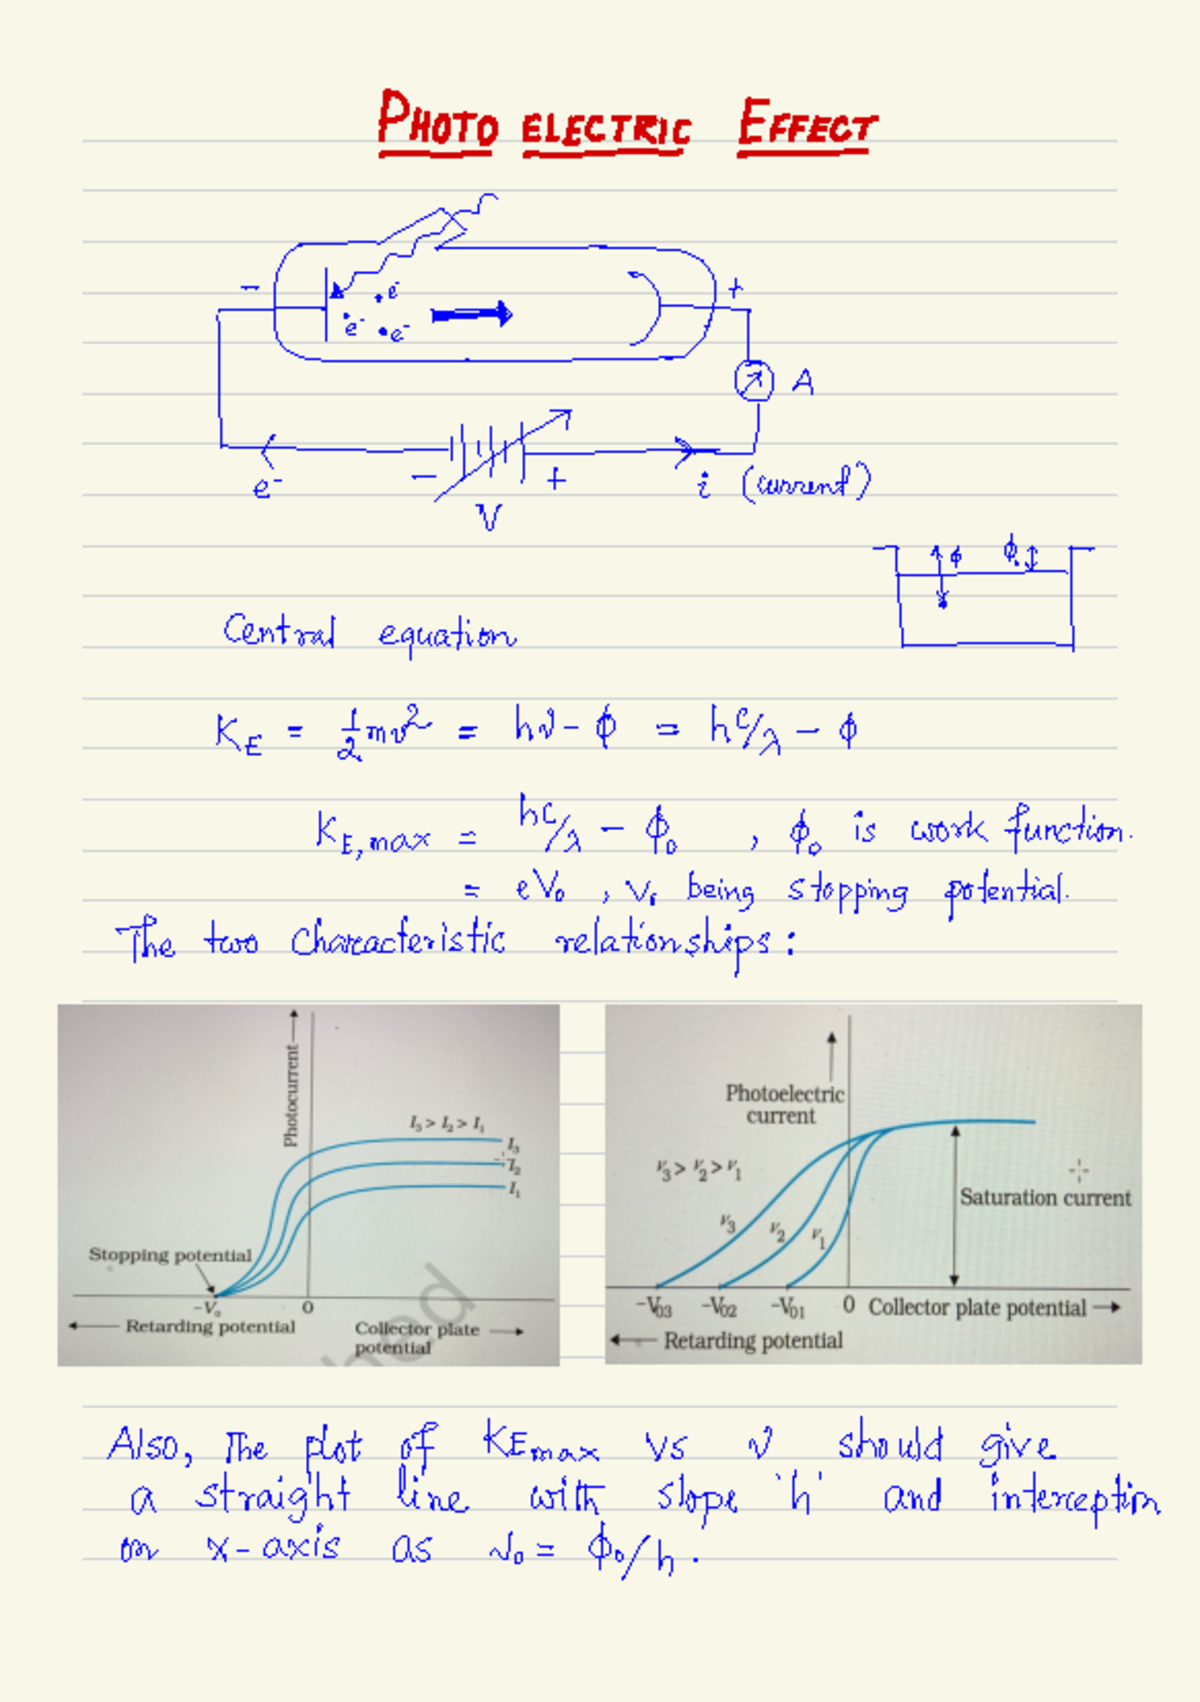 PHOTO ELECTRIC EFFECT
-
+
e⁻
e⁻
e⁻
A
- +
e⁻
i (current)
V
ϕ ϕ₀
Central equation
K_E = 1/2 mv² = hν - ϕ = hc/λ - ϕ
K_E,max = hc/λ - ϕ₀ , ϕ₀ is work function.
= eV₀ , V₀ being stopping potential.
The two characteristic relationships:
Photocurrent
I₃ > I₂ > I₁
I₃
I₂
I₁
Stopping potential
-V₀ 0
Retarding potential
Collector plate
potential
hed
Photoelectric
current
ν₃ > ν₂ > ν₁
ν₃ ν₂ ν₁
Saturation current
-V₀₃ -V₀₂ -V₀₁ 0 Collector plate potential
Retarding potential
Also, The plot of KEmax vs ν should give
a straight line with slope 'h' and interception
on x-axis as ν₀ = ϕ₀/h.